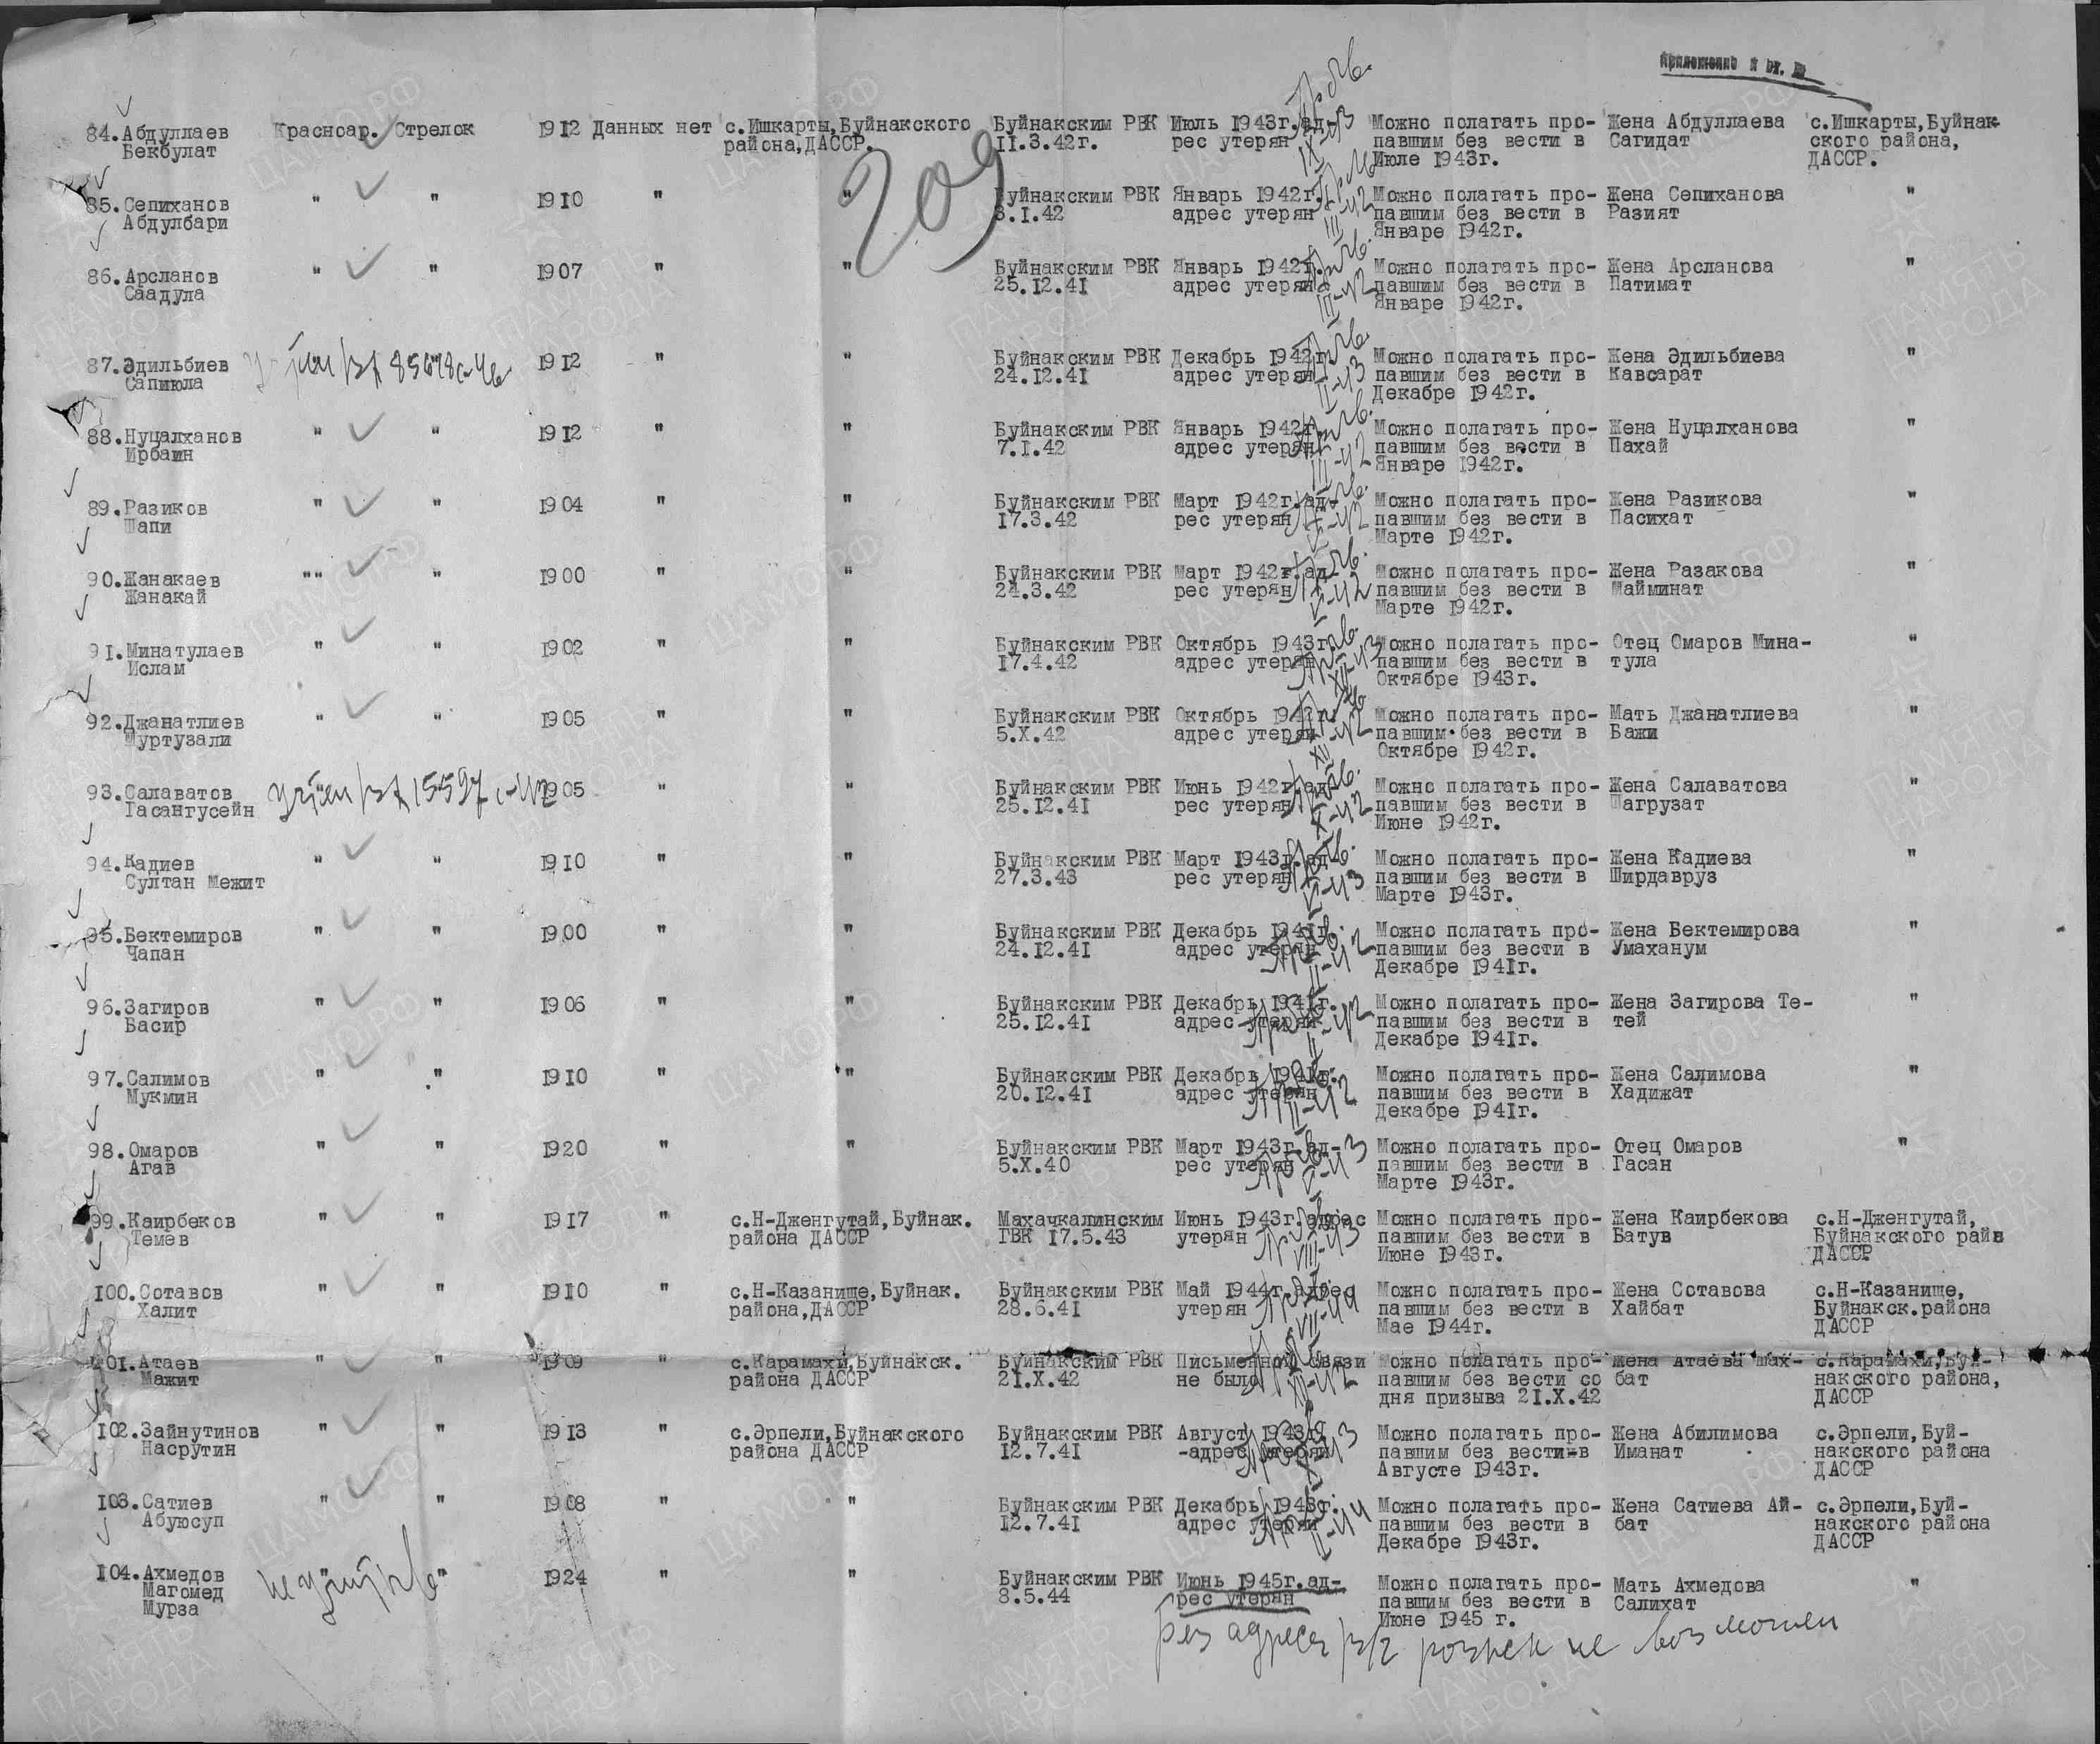 84.Абдуллаев Красноар. Стрелок 1912 Данных нет с.Ишкарты,Буйнакского Буйнакским РВК Июль 1943г.ад- Можно полагать про- Жена Абдуллаева с.Ишкарты,Буйнак-
Бекбулат района,ДАССР. 11.3.42г. рес утерян павшим без вести в Сагидат ского района,
Июле 1943г. ДАССР.
209
85.Сепиханов " " 1910 " " Буйнакским РВК Январь 1942г. Можно полагать про- Жена Сепиханова "
Абдулбари 3.1.42 адрес утерян павшим без вести в Разият
Январе 1942г.
86.Арсланов " " 1907 " " Буйнакским РВК Январь 1942г. Можно полагать про- Жена Арсланова "
Саадула 25.12.41 адрес утерян павшим без вести в Патимат
Январе 1942г.
87.Эдильбиев 1912 " " Буйнакским РВК Декабрь 1942г. Можно полагать про- Жена Эдильбиева "
Сапиюла 24.12.41 адрес утерян павшим без вести в Кавсарат
Декабре 1942г.
88.Нуцалханов " " 1912 " " Буйнакским РВК Январь 1942г Можно полагать про- Жена Нуцалханова "
Ирбаин 7.1.42 адрес утерян павшим без вести в Пахай
Январе 1942г.
89.Разиков " " 1904 " " Буйнакским РВК Март 1942г.ад- Можно полагать про- Жена Разикова "
Шапи 17.3.42 рес утерян павшим без вести в Пасихат
Марте 1942г.
90.Жанакаев "" " 1900 " " Буйнакским РВК Март 1942г.ад- Можно полагать про- Жена Разакова "
Жанакай 24.3.42 рес утерян павшим без вести в Майминат
Марте 1942г.
91.Минатулаев " " 1902 " " Буйнакским РВК Октябрь 1943г. Можно полагать про- Отец Омаров Мина- "
Ислам 17.4.42 адрес утерян павшим без вести в тула
Октябре 1943г.
92.Джанатлиев " " 1905 " " Буйнакским РВК Октябрь 1942г. Можно полагать про- Мать Джанатлиева "
Муртузали 5.X.42 адрес утерян павшим без вести в Бажи
Октябре 1942г.
93.Салаватов 1905 " " Буйнакским РВК Июнь 1942г.ад- Можно полагать про- Жена Салаватова "
Гасангусейн 25.12.41 рес утерян павшим без вести в Шагрузат
Июне 1942г.
94.Кадиев " " 1910 " " Буйнакским РВК Март 1943г.ад- Можно полагать про- Жена Кадиева "
Султан Межит 27.3.43 рес утерян павшим без вести в Ширдавруз
Марте 1943г.
95.Бектемиров " " 1900 " " Буйнакским РВК Декабрь 1941г. Можно полагать про- Жена Бектемирова "
Чапан 24.12.41 адрес утерян павшим без вести в Умаханум
Декабре 1941г.
96.Загиров " " 1906 " " Буйнакским РВК Декабрь 1941г. Можно полагать про- Жена Загирова Те- "
Басир 25.12.41 адрес утерян павшим без вести в тей
Декабре 1941г.
97.Салимов " " 1910 " " Буйнакским РВК Декабрь 1941г. Можно полагать про- Жена Салимова "
Мукмин 20.12.41 адрес утерян павшим без вести в Хадижат
Декабре 1941г.
98.Омаров " " 1920 " " Буйнакским РВК Март 1943г.ад- Можно полагать про- Отец Омаров "
Агав 5.X.40 рес утерян павшим без вести в Гасан
Марте 1943г.
99.Каирбеков " " 1917 " с.Н-Дженгутай,Буйнак. Махачкалинским Июнь 1943г.адрес Можно полагать про- Жена Каирбекова с.Н-Дженгутай,
Темев района ДАССР ГВК 17.5.43 утерян павшим без вести в Батув Буйнакского райв
Июне 1943г. ДАССР
100.Сотавов " " 1910 " с.Н-Казанище,Буйнак. Буйнакским РВК Май 1944г.адрес Можно полагать про- Жена Сотавова с.Н-Казанище,
Халит района,ДАССР 28.6.41 утерян павшим без вести в Хайбат Буйнакск.района
Мае 1944г. ДАССР
101.Атаев " " 1909 " с.Карамахи,Буйнакск. Буйнакским РВК Письменной связи Можно полагать про- Жена Атаева Шах- с.Карамахи,Буй-
Мажит района ДАССР 21.X.42 не было павшим без вести со бат накского района,
дня призыва 21.X.42 ДАССР
102.Зайнутинов " " 1913 " с.Эрпели,Буйнакского Буйнакским РВК Август 1943г. Можно полагать про- Жена Абилимова с.Эрпели,Буй-
Насрутин района ДАССР 12.7.41 -адрес утерян павшим без вести-в Иманат накского района
Августе 1943г. ДАССР
103.Сатиев " " 1908 " " Буйнакским РВК Декабрь 1943г. Можно полагать про- Жена Сатиева Ай- с.Эрпели,Буй-
Абуюсуп 12.7.41 адрес утерян павшим без вести в бат накского района
Декабре 1943г. ДАССР
104.Ахмедов " " 1924 " " Буйнакским РВК Июнь 1945г.ад- Можно полагать про- Мать Ахмедова "
Магомед 8.5.44 рес утерян павшим без вести в Салихат
Мурза Июне 1945 г.
Без адреса розыск не возможен